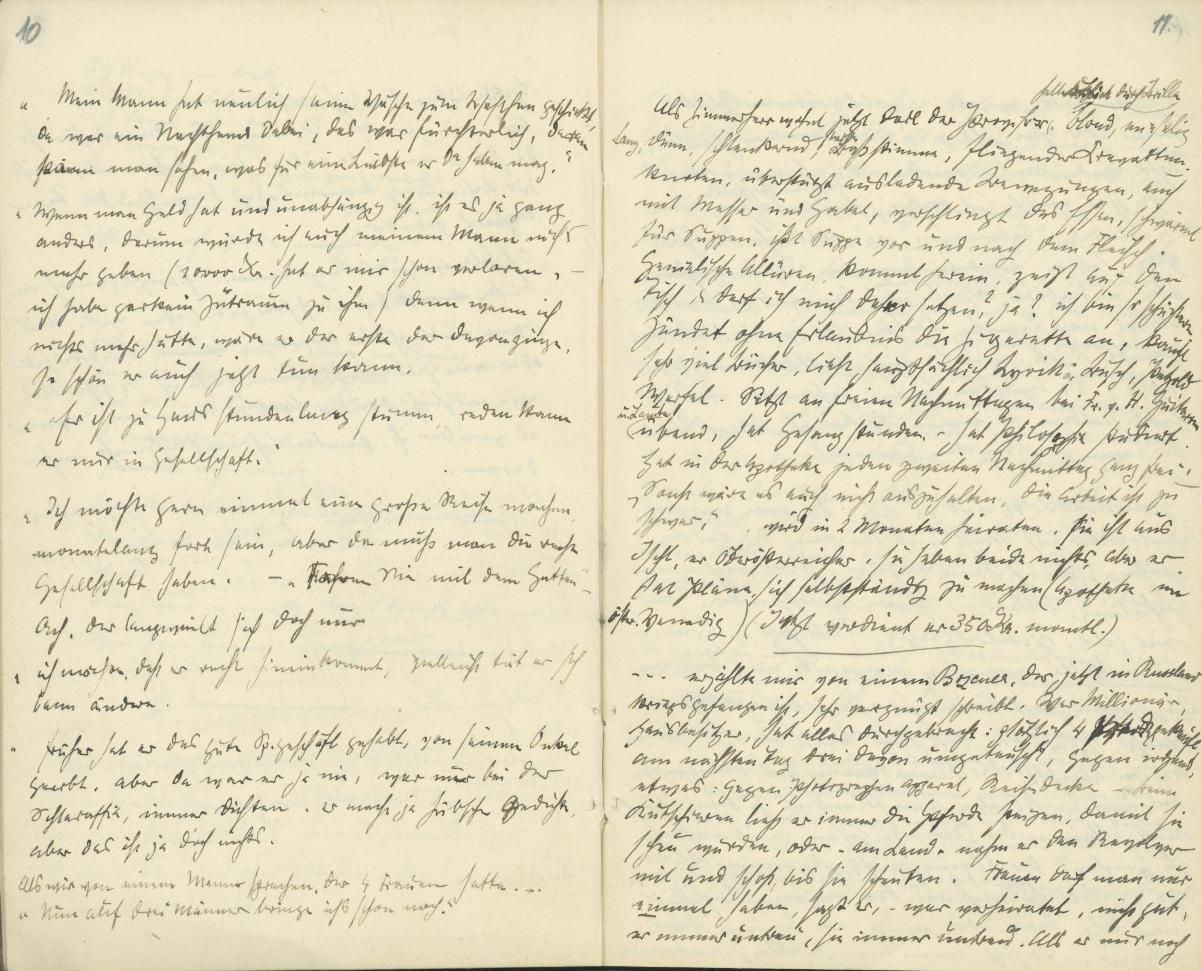 10
" Mein Mann hat neulich seine Wäsche zum Waschen geschickt,
da war ein Nachthemd dabei, das war fürchterlich, daran
kann man sehen, was für eine Liebste er da haben mag."
" Wenn man Geld hat und unabhängig ist, ist es ja ganz
anders, darum würde ich auch meinem Mann nichts
mehr geben (20000 Kr. hat er mir schon verloren, –
ich habe gar kein Zutrauen zu ihm) denn wenn ich
nichts mehr hätte, wäre er der erste der davonginge,
so schön er auch jetzt tun kann.
" Er ist zu Haus stundenlang stumm, reden kann
er nur in Gesellschaft."
" Ich möchte gern einmal eine große Reise machen,
monatelang fort sein, aber da muß man die rechte
Gesellschaft haben. – " Fahren Sie mit dem Gatten" –
Ach, der langweilt sich doch nur
" ich möchte, daß er recht hineinkommt, vielleicht tut er sich
dann ändern.
" Früher hat er das gute Sp.geschäft gehabt, von seinem Onkel
geerbt. Aber da war er ja nie, war nur bei der
Schlaraffia, immer dichten. er macht ja hübsche Gedichte,
aber das ist ja doch nichts.
Als wir von einem Manne sprachen, der 4 Frauen hatte ...
" Nun auf drei Männer bringe ichs schon noch."
11.
Als Zimmerherr wohnt jetzt dort der Provisor. Blond,
lang, dünn, schlenkernd, Baßstimme, fliegender Krawatten
knoten, überstürzt ausladende Bewegungen, auch
mit Messer und Gabel, verschlingt das Essen, schwärmt
für Suppen, ißt Suppe vor und nach dem Fleisch.
Genialische Allüren, kommt herein, zeigt auf den
Tisch: darf ich mich daher setzen? ja? ich bin so schüchtern
zündet ohne Erlaubnis die Zigarette an, kauft
sehr viel Bücher, liest hauptsächlich Lyrik: Busch, Petzold
Werfel. Sitzt an freien Nachmittagen bei Fr. v. H.
übend, hat Gesangstunden – hat Philosophie studiert.
Hat in der Apotheke jeden zweiten Nachmittag ganz frei,
"Sonst wäre es auch nicht auszuhalten, die Arbeit ist zu
schwer." wird in 2 Monaten heiraten. Sie ist aus
Ischl, er Oberösterreicher. Sie haben beide nichts, aber er
hat Pläne, sich selbstständig zu machen (Apotheke in
öster. Venedig) (Jetzt verdient er 350 Kr. monatl.)
--- erzählte mir von einem Bozener, der jetzt in Russland
kriegsgefangen ist, sehr vergnügt schreibt. War Millionär,
Hausbesitzer, hat alles durchgebracht: plötzlich 4 Pferde gekauft
am nächsten Tag drei davon umgetauscht, gegen irgend
etwas: gegen Photographen apparat, Reisedecke – beim
Kutschieren ließ er immer die Pferde, damit sie
scheu wurden, oder – am Land – nahm er den Revolver
mit und schoß, bis sie scheuten. Frauen darf man nur
einmal haben, sagt er, – war verheiratet, nicht gut,
er immer untreu, sie immer untreu. Als er nur noch